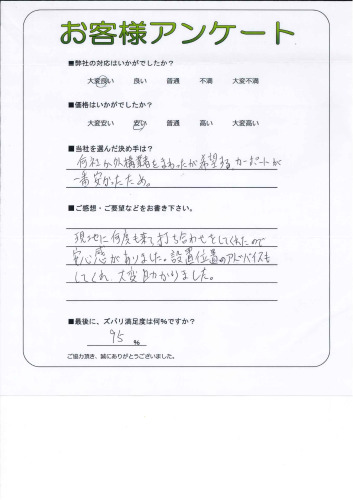 お客様アンケート
■弊社の対応はいかがでしたか?
大変良い 良い 普通 不満 大変不満
■価格はいかがでしたか?
大変安い 安い 普通 高い 大変高い
■当社を選んだ決め手は?
何社か外構業者をまわったが希望するカーポートが
一番安かったため。
■ご感想・ご要望などをお書き下さい。
現地に何度も来て打ち合わせをしてくれたので
安心感がありました。設置位置のアドバイスも
してくれ、大変助かりました。
■最後に、ズバリ満足度は何%ですか?
95 %
ご協力頂き、誠にありがとうございました。